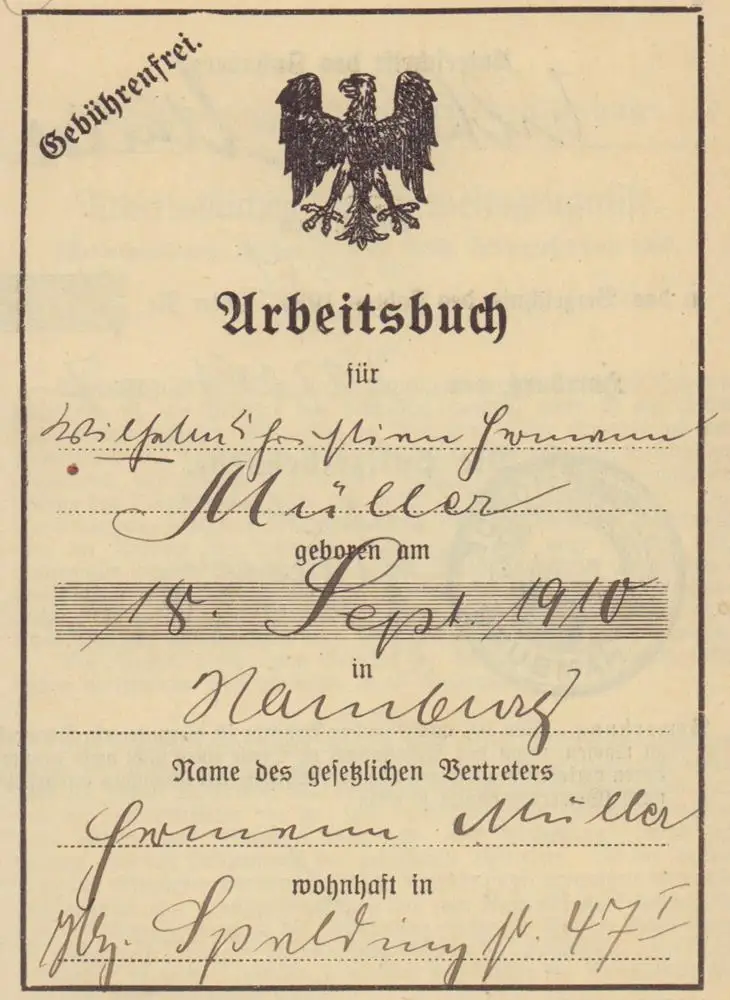 Gebührenfrei.
Arbeitsbuch
für
Wilhelm Christian Hermann
Müller
geboren am
18. Sept. 1910
in
Hamburg
Name des gesetzlichen Vertreters
Hermann Müller
wohnhaft in
Hbg. Spaldingstr. 47 I